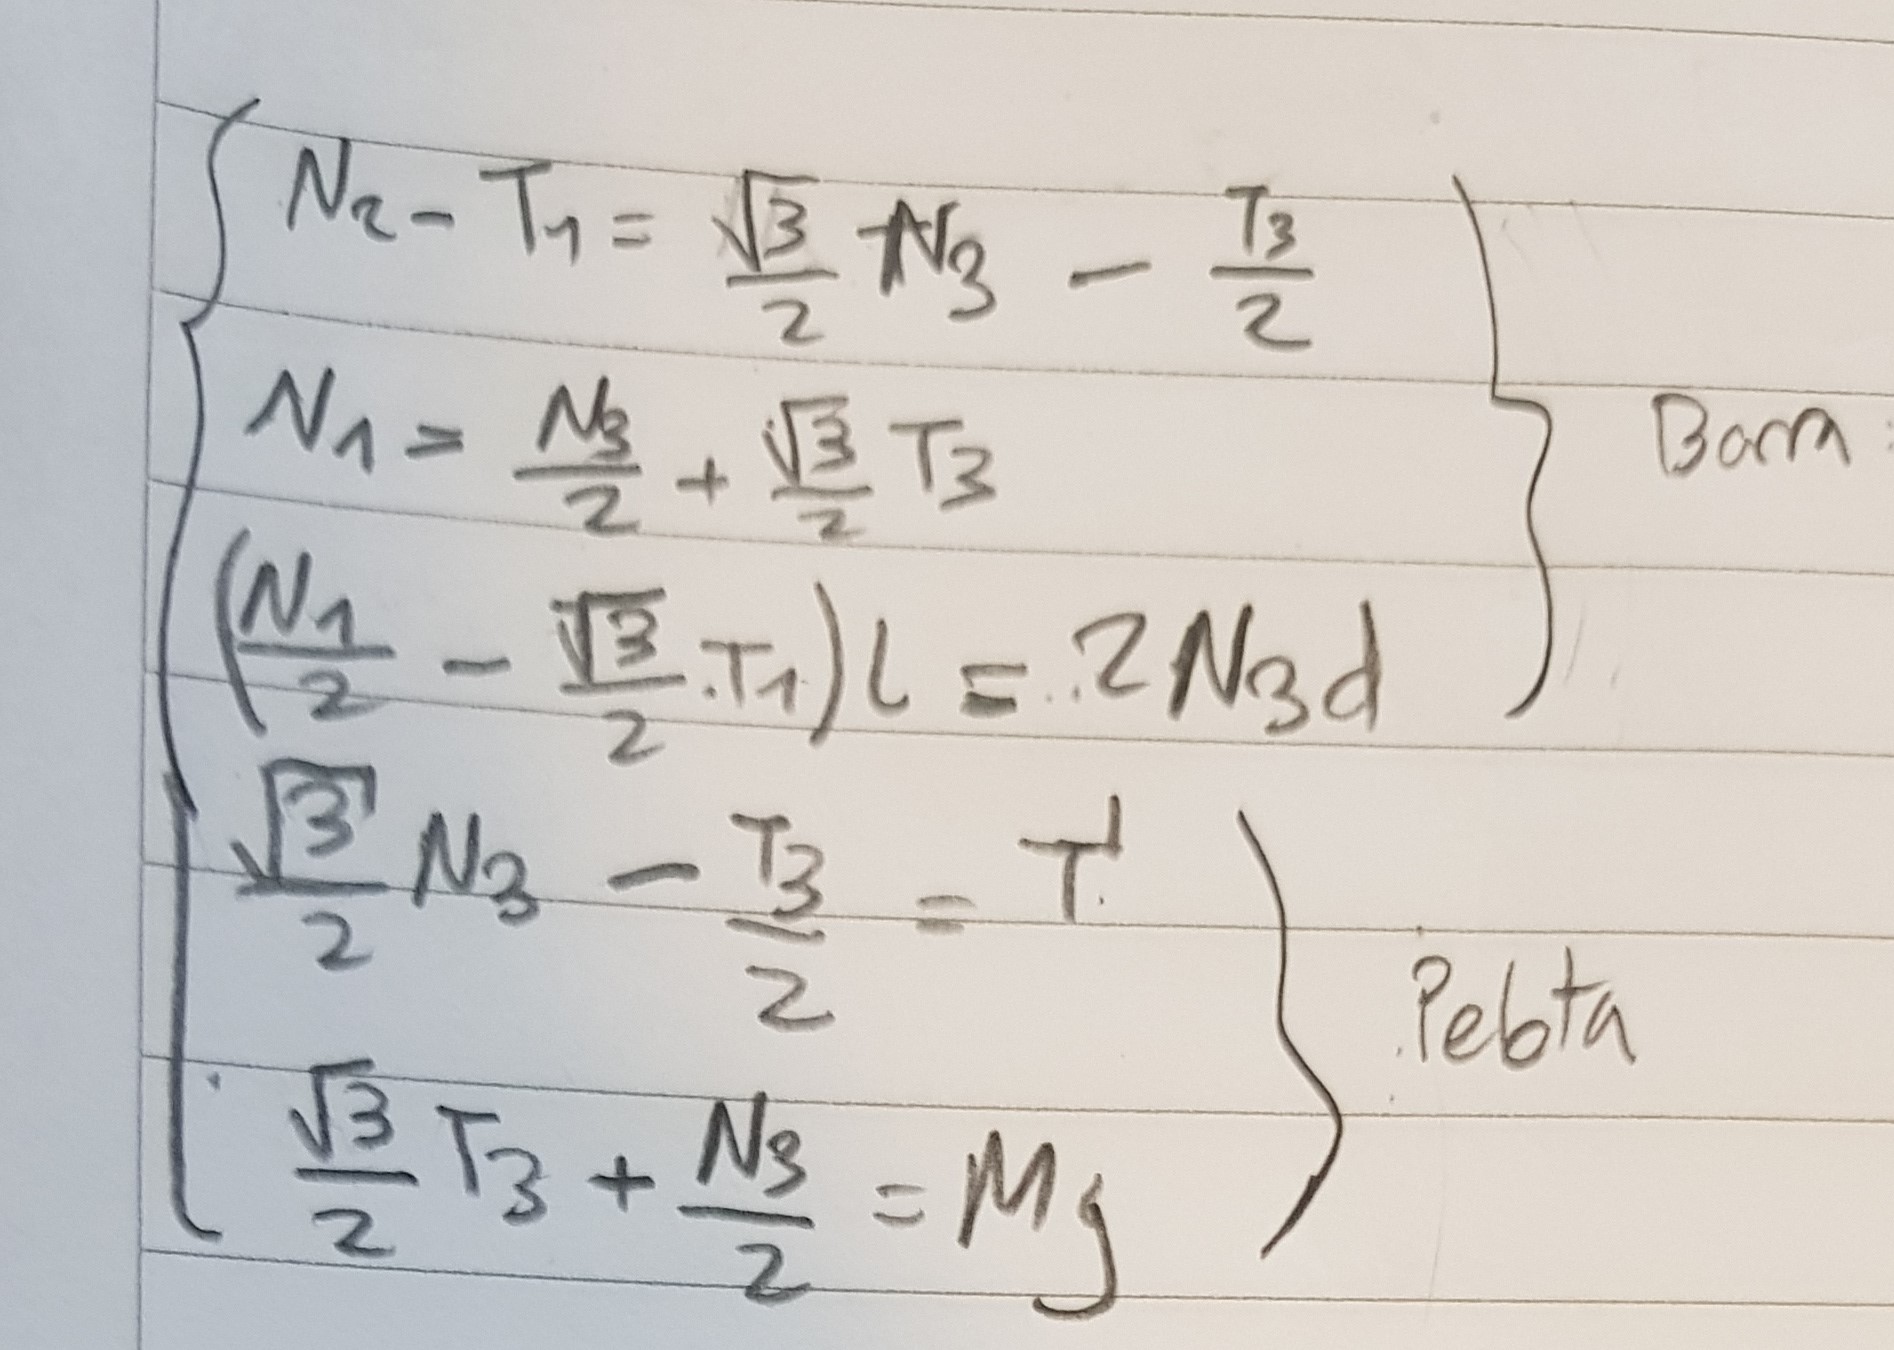 N₂ - T₁ = √3/2 N₃ - T₃/2
N₁ = N₃/2 + √3/2 T₃
(N₁/2 - √3/2 · T₁) l = 2 N₃ d
√3/2 N₃ - T₃/2 = T'
√3/2 T₃ + N₃/2 = Mg
Pebta